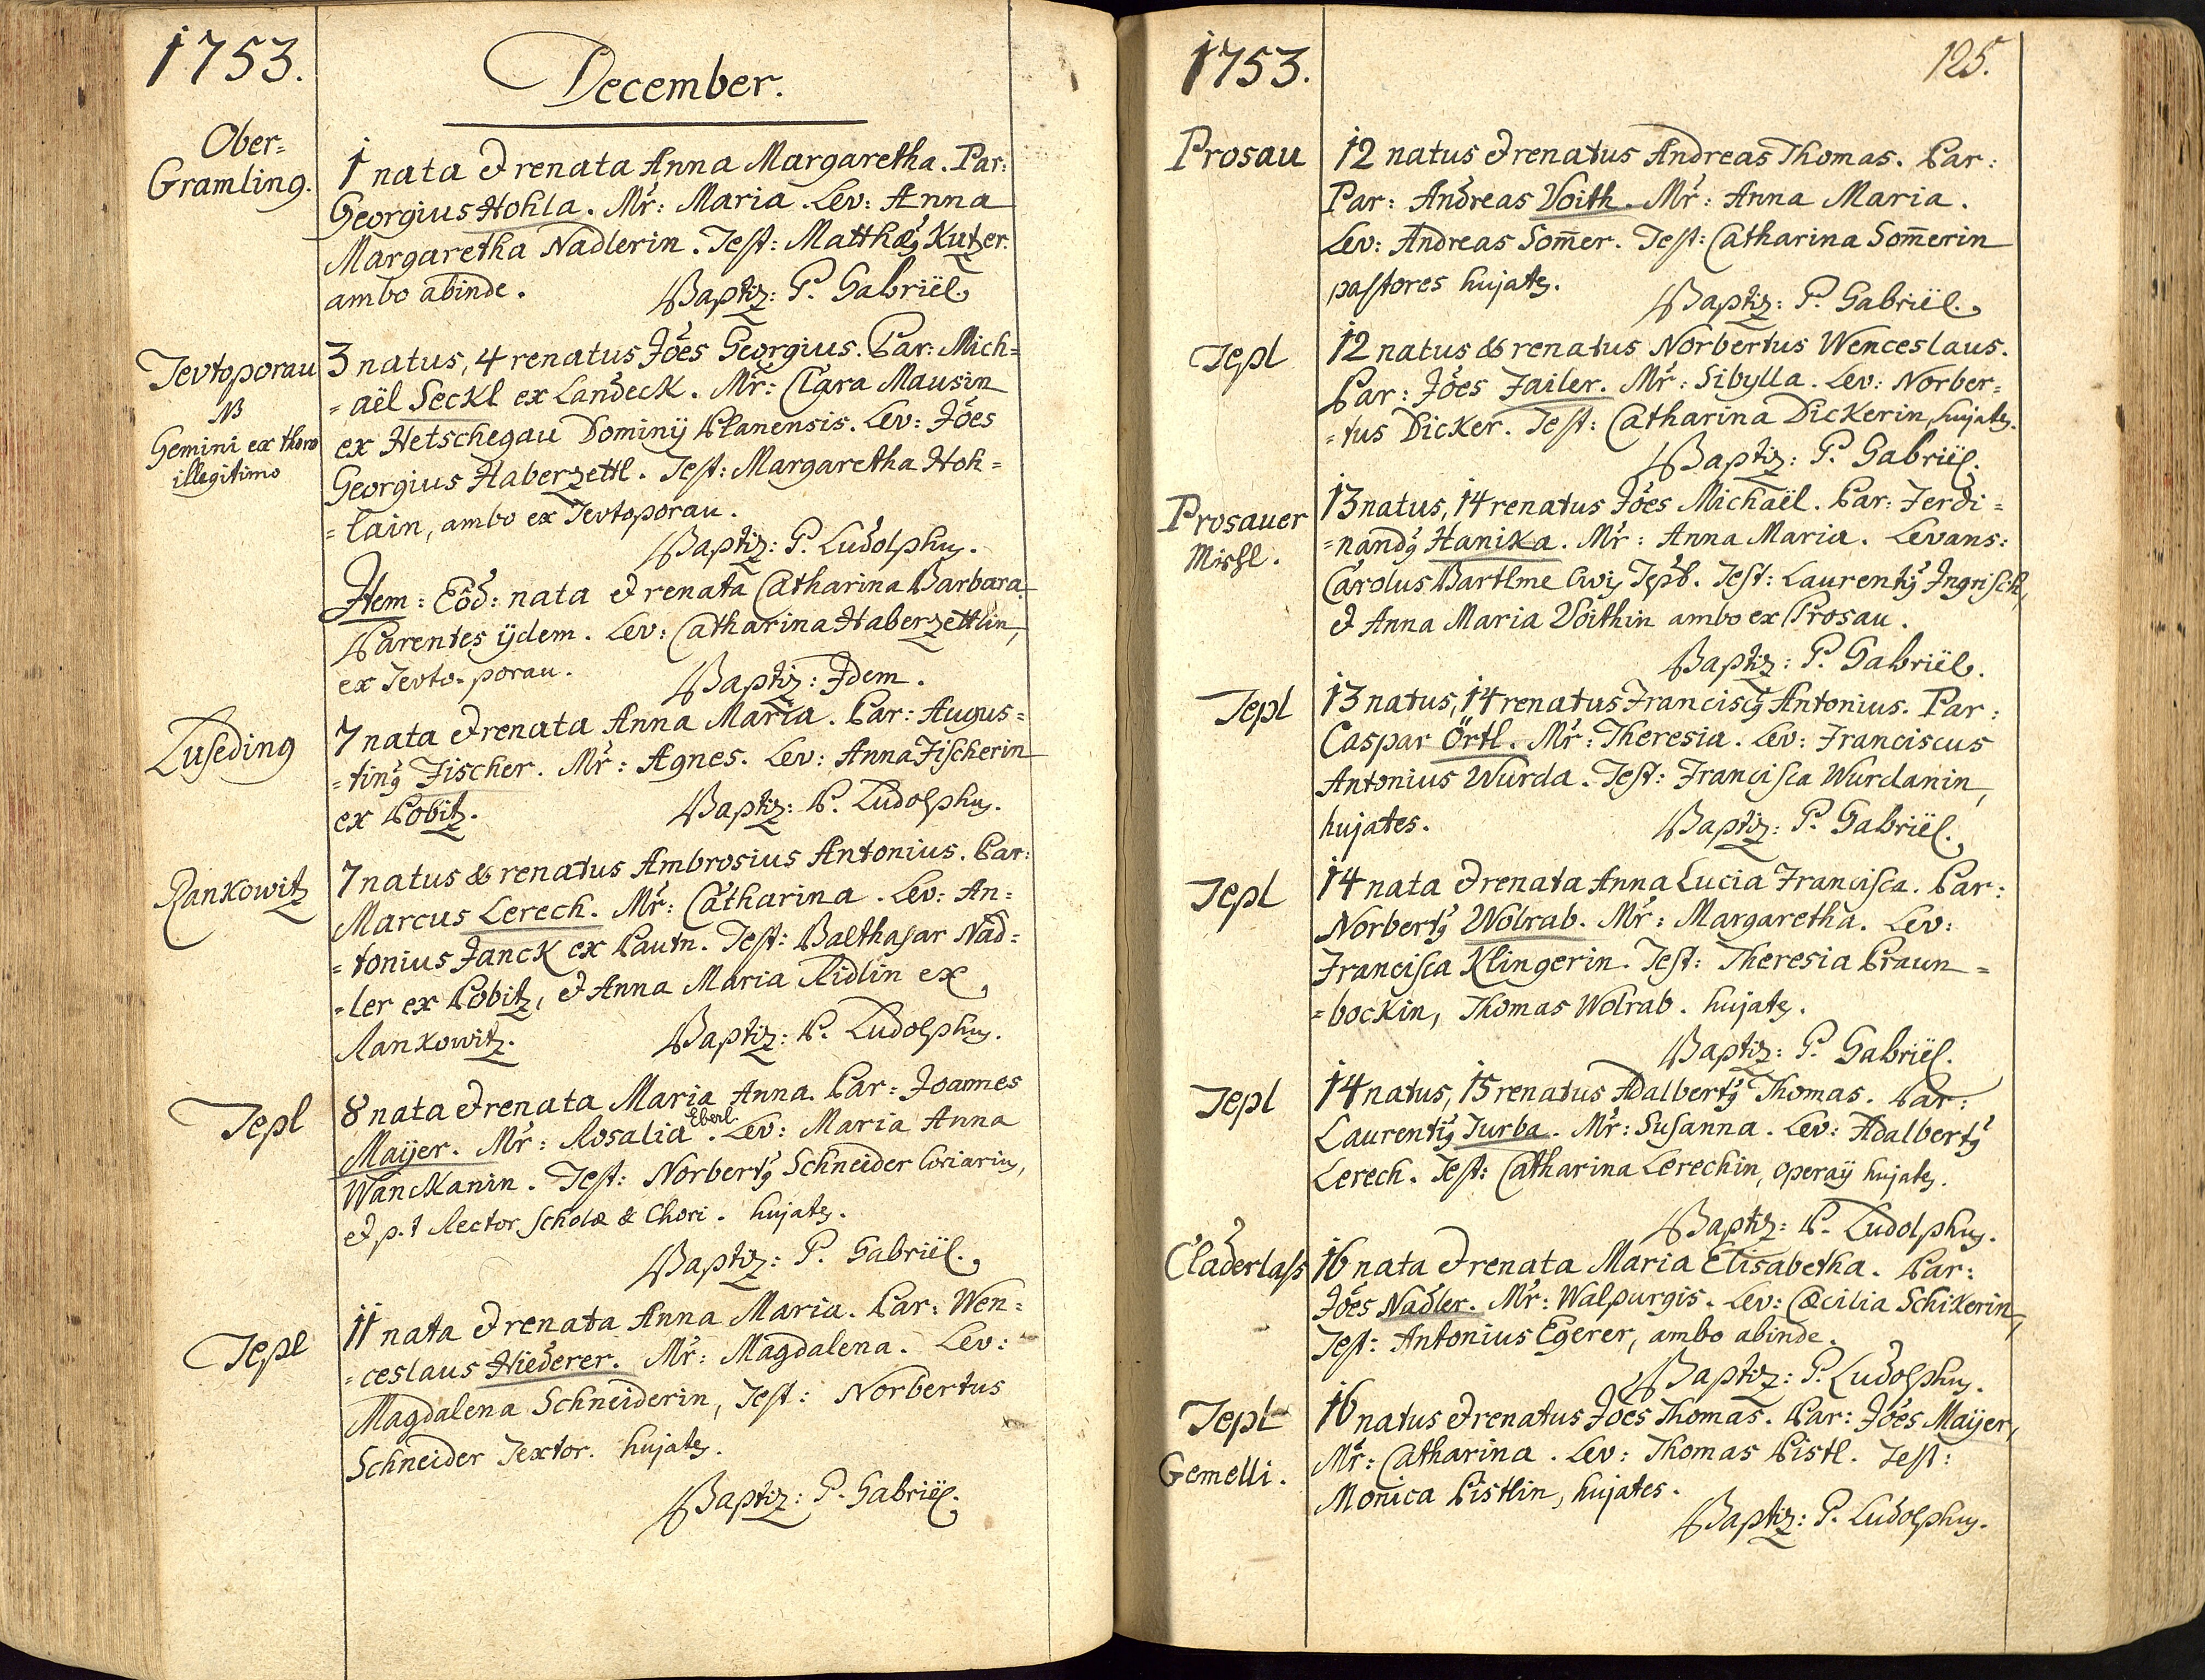 1753.
December.
Ober=
Gramling.
1 nata & renata Anna Margaretha. Par:
Georgius Hohla. Mr̃: Maria. Lev: Anna
Margaretha Nadlerin. Test: Matthæꝯ Kutzer.
ambo abinde. Baptiz: P. Gabriël.
Tevtoporau
NB
Gemini ex thoro
illegitimo
3 natus, 4 renatus Jões Georgius. Par: Mich=
=aël Seckl ex Landeck. Mr̃: Clara Mausin
ex Hetschegau Dominij Planensis. Lev: Jões
Georgius Haberzettl. Test: Margaretha Hoh=
=lain, ambo ex Tevtoporau.
Baptiz: P. Ludolphꝯ.
Item: Eõd: nata & renata Catharina Barbara.
Parentes ijdem. Lev: Catharina Haberzettlin,
ex Tevto-porau. Baptiz: Idem.
Luseding
7 nata & renata Anna Maria. Par: Augus=
=tinꝯ Fischer. Mr̃: Agnes. Lev: Anna Fischerin
ex Pobitz. Baptiz: P. Ludolphꝯ.
Rankowitz
7 natus & renatus Ambrosius Antonius. Par:
Marcus Lerech. Mr̃: Catharina. Lev: An=
=tonius Janck ex Pautn. Test: Balthasar Nad=
=ler ex Pobitz, & Anna Maria Ridlin ex
Rankowitz. Baptiz: P. Ludolphꝯ.
Tepl
8 nata & renata Maria Anna. Par: Joannes
Maÿer. Mr̃: Rosalia Eberl. Lev: Maria Anna
Wanckanin. Test: Norbertꝯ Schneider Coriariꝯ,
& p.t Rector Scholæ & Chori. hujatꝯ.
Baptiz: P. Gabriël.
Tepl
11 nata & renata Anna Maria. Par: Wen=
=ceslaus Hiederer. Mr̃: Magdalena. Lev:
Magdalena Schneiderin, Test: Norbertus
Schneider Textor. hujatꝯ.
Baptiz: P. Gabriël.
1753.
125.
Prosau
12 natus & renatus Andreas Thomas. Par:
Par: Andreas Voith. Mr̃: Anna Maria.
Lev: Andreas Som̃er. Test: Catharina Som̃erin
pastores hujatꝯ.
Baptiz: P. Gabriël.
Tepl
12 natus & renatus Norbertus Wenceslaus.
Par: Jões Jailer. Mr̃: Sibylla. Lev: Norber=
=tus Dicker. Test: Catharina Dickerin, hujatꝯ.
Baptiz: P. Gabriël.
Prosauer
Mishl.
13 natus, 14 renatus Jões Michaël. Par: Ferdi=
=nandꝯ Hanika. Mr̃: Anna Maria. Levans:
Carolus Bartlme Civiꝯ Tepl. Test: Laurentiꝯ Ingrisch,
& Anna Maria Voithin ambo ex Prosau.
Baptiz: P. Gabriël.
Tepl
13 natus, 14 renatus Franciscꝯ Antonius. Par:
Caspar Örtl. Mr̃: Theresia. Lev: Franciscus
Antonius Wurda. Test: Francisca Wurdanin,
hujates. Baptiz: P. Gabriël.
Tepl
14 nata & renata Anna Lucia Francisca. Par:
Norbertꝯ Wolrab. Mr̃: Margaretha. Lev:
Francisca Klingerin. Test: Theresia Praun=
=bockin, Thomas Wolrab. hujatꝯ.
Baptiz: P. Gabriël.
Tepl
14 natus, 15 renatus Adalbertꝯ Thomas. Par:
Laurentiꝯ Turba. Mr̃: Susanna. Lev: Adalbertꝯ
Lerech. Test: Catharina Lerechin, operaÿ hujatꝯ.
Baptiz: P. Ludolphꝯ.
Claderlass
16 nata & renata Maria Elisabetha. Par:
Jões Nadler. Mr̃: Walpurgis. Lev: Cæcilia Schikerin,
Test: Antonius Egerer, ambo abinde.
Baptiz: P. Ludolphꝯ.
Tepl
Gemelli.
16 natus & renatus Jões Thomas. Par: Jões Maÿer,
Mr̃: Catharina. Lev: Thomas Pistl. Test:
Monica Pistlin, hujates.
Baptiz: P. Ludolphꝯ.